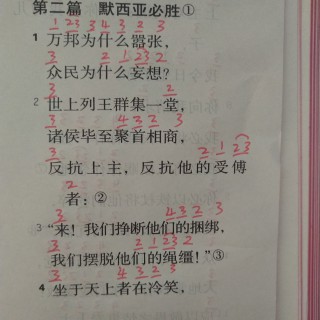 第二篇 默西亚必胜①
1 23 3 4 3 2 3
1 万邦为什么嚣张，
3 2 1 23 2
众民为什么妄想？
3 4 3 2 3
2 世上列王群集一堂，
3 4 3 2
诸侯毕至聚首相商，
3 2 1 23
反抗上主，反抗他的受傅
2
者：②
3 4 3 2 3
3 “来！我们挣断他们的捆绑，
3 2 1 23 2
我们摆脱他们的绳缰！”③
3 4 3 2 3
4 坐于天上者在冷笑，